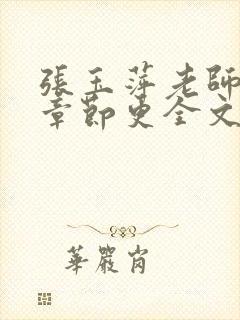 張玉萍老師
章節更全文
華嚴肖